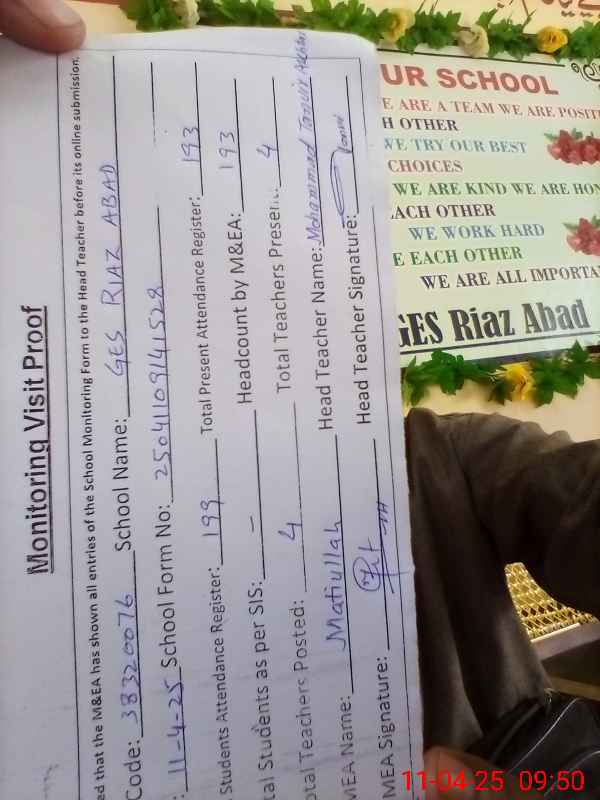 Monitoring Visit Proof
ed that the M&EA has shown all entries of the School Monitoring Form to the Head Teacher before its online submission.
Code: 38320076 School Name: GES RIAZ ABAD
: 11-4-25 School Form No: 25041109141528
Students Attendance Register: 199 Total Present Attendance Register: 193
tal Students as per SIS: – Headcount by M&EA: 193
otal Teachers Posted: 4 Total Teachers Present: 4
MEA Name: Matiullah Head Teacher Name: Mohammad Tanvir Akhtar
MEA Signature: Head Teacher Signature:
UR SCHOOL
E ARE A TEAM WE ARE POSITI
H OTHER
WE TRY OUR BEST
CHOICES
WE ARE KIND WE ARE HON
EACH OTHER
WE WORK HARD
E EACH OTHER
WE ARE ALL IMPORTA
GES Riaz Abad
11-04-25 09:50